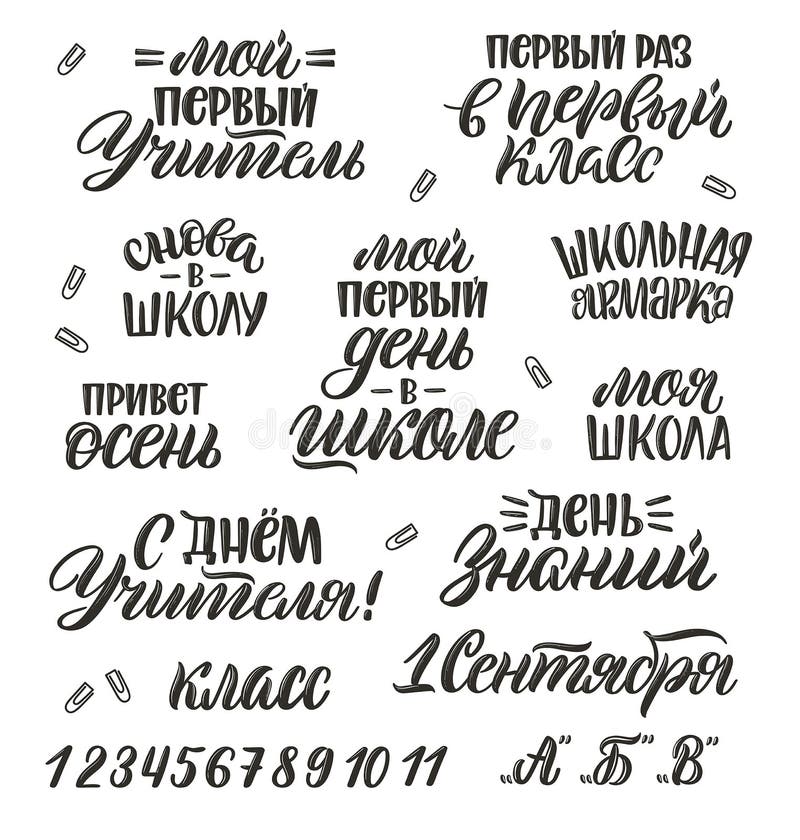 мой
ПЕРВЫЙ
Учитель
ПЕРВЫЙ РАЗ
в первый
класс
снова
- В -
ШКОЛУ
мой
ПЕРВЫЙ
день
- В -
школе
ШКОЛЬНАЯ
ярмарка
ПРИВЕТ
осень
моя
ШКОЛА
С ДНЁМ
Учителя!
ДЕНЬ
Знаний
класс
1 Сентября
1 2 3 4 5 6 7 8 9 10 11
„А” „Б” „В”
dreamstime